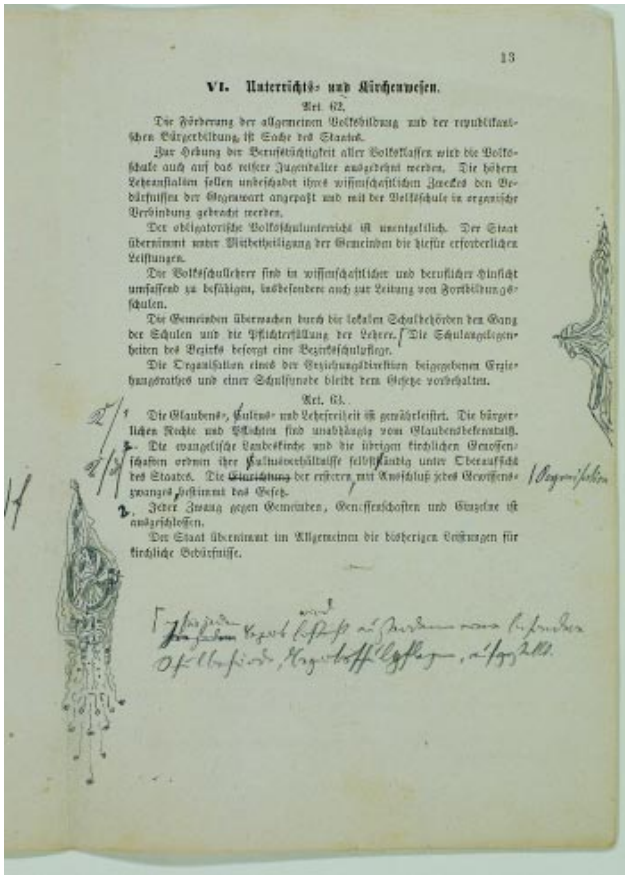 13
VI. Unterrichts- und Kirchenwesen.
Art. 62.
Die Förderung der allgemeinen Volksbildung und der republikani-
schen Bürgerbildung ist Sache des Staates.
Zur Hebung der Berufstüchtigkeit aller Volksklassen wird die Volks-
schule auch auf das reifere Jugendalter ausgedehnt werden. Die höhern
Lehranstalten sollen unbeschadet ihres wissenschaftlichen Zweckes den Be-
dürfnissen der Gegenwart angepaßt und mit der Volksschule in organische
Verbindung gebracht werden.
Der obligatorische Volksschulunterricht ist unentgeltlich. Der Staat
übernimmt unter Mitbetheiligung der Gemeinden die hiefür erforderlichen
Leistungen.
Die Volksschullehrer sind in wissenschaftlicher und beruflicher Hinsicht
umfassend zu befähigen, insbesondere auch zur Leitung von Fortbildungs-
schulen.
Die Gemeinden überwachen durch die lokalen Schulbehörden den Gang
der Schulen und die Pflichterfüllung der Lehrer. Die Schulangelegen-
heiten des Bezirks besorgt eine Bezirksschulpflege.
Die Organisation eines der Erziehungsdirektion beigegebenen Erzie-
hungsrathes und einer Schulsynode bleibt dem Gesetze vorbehalten.
Art. 63.
Die Glaubens-, Cultus- und Lehrfreiheit ist gewährleistet. Die bürger-
lichen Rechte und Pflichten sind unabhängig vom Glaubensbekenntniß.
Die evangelische Landeskirche und die übrigen kirchlichen Genossen-
schaften ordnen ihre Cultusverhältnisse selbstständig unter Oberaufsicht
des Staates. Die Einrichtung der ersteren mit Ausschluß jedes Gewissens-
zwanges bestimmt das Gesetz. Organisation
2. Jeder Zwang gegen Gemeinden, Genossenschaften und Einzelne ist
ausgeschlossen.
Der Staat übernimmt im Allgemeinen die bisherigen Leistungen für
kirchliche Bedürfnisse.
wird
für jeden
Schulbehörde, Bezirksschulpflege, aufgestellt.